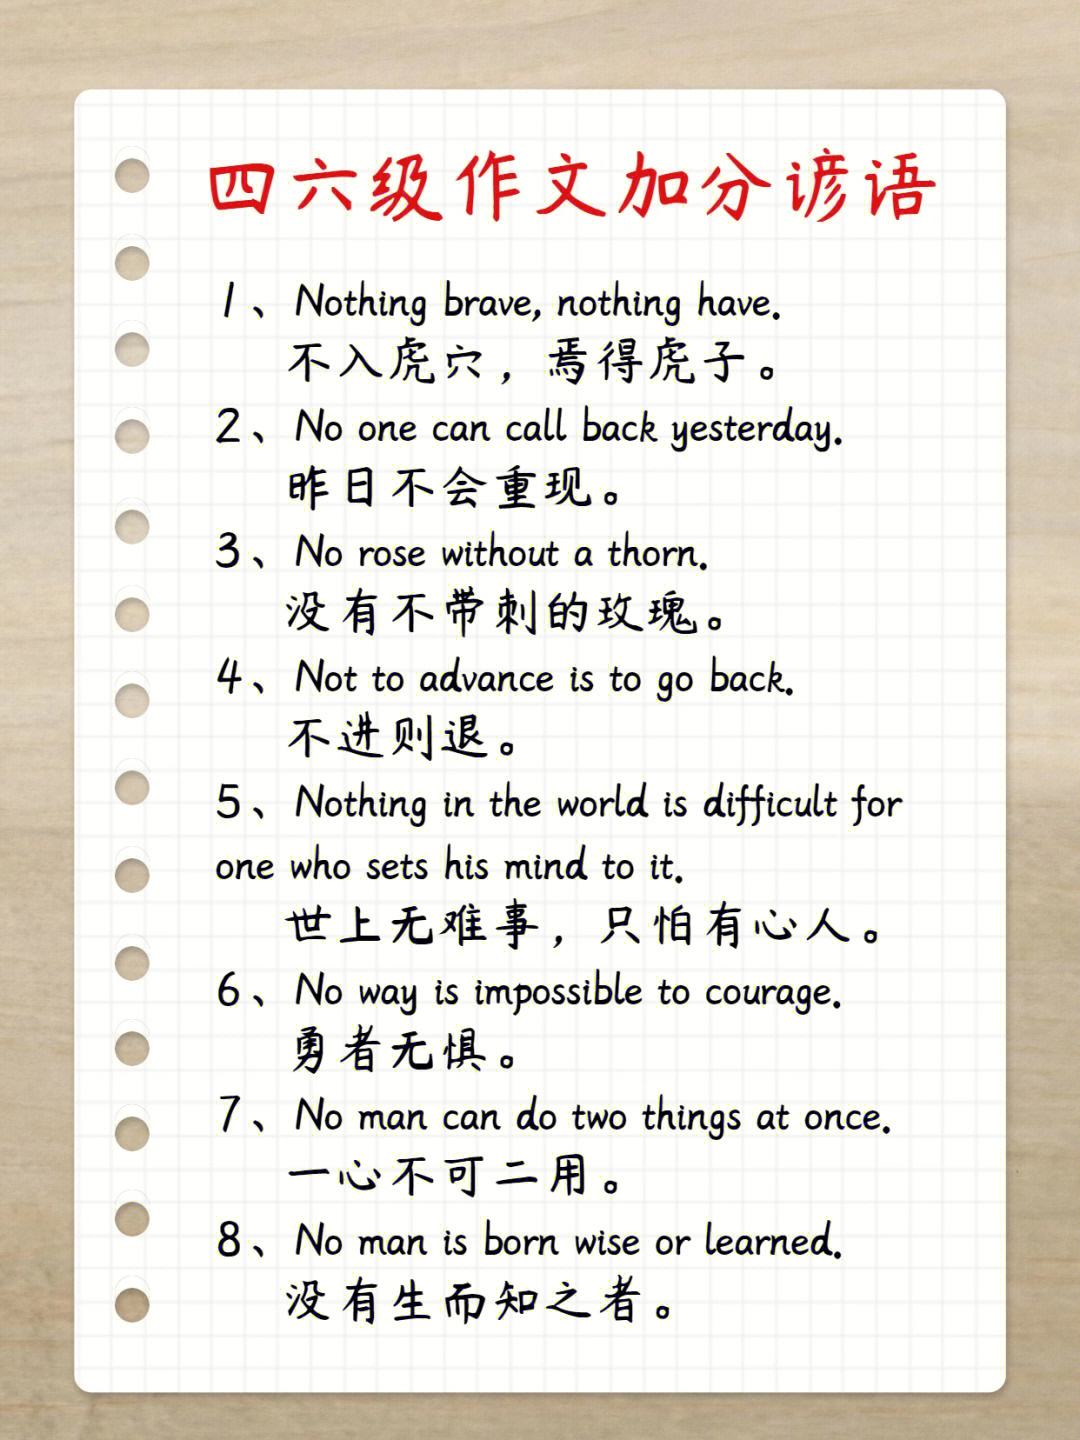 四六级作文加分谚语
1、Nothing brave, nothing have.
不入虎穴，焉得虎子。
2、No one can call back yesterday.
昨日不会重现。
3、No rose without a thorn.
没有不带刺的玫瑰。
4、Not to advance is to go back.
不进则退。
5、Nothing in the world is difficult for
one who sets his mind to it.
世上无难事，只怕有心人。
6、No way is impossible to courage.
勇者无惧。
7、No man can do two things at once.
一心不可二用。
8、No man is born wise or learned.
没有生而知之者。